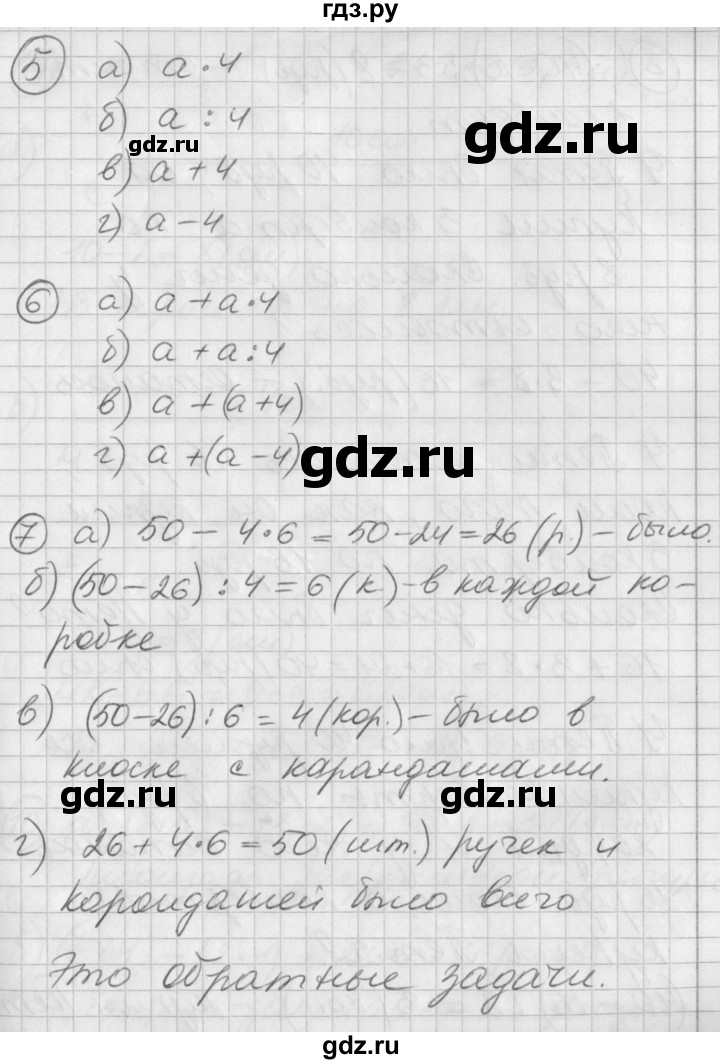 гдз.ру
5 а) а·4
б) а : 4
gdz.ru
gdz.ru
в) а + 4
г) а − 4
6 а) а + а·4
б) а + а:4
в) а + (а+4)
г) а + (а − 4)
gdz.ru
7 а) 50 − 4·6 = 50-24=26 (р.) − было.
б) (50−26) : 4 = 6 (к) - в каждой ко-
робке
в) (50−26) : 6 = 4 (кор.) − было в
киоске с карандашами.
gdz.ru
gdz.ru
г) 26 + 4·6 = 50 (шт.) ручек и
карандашей было всего
Это обратные задачи.
gdz.ru
gdz.ru